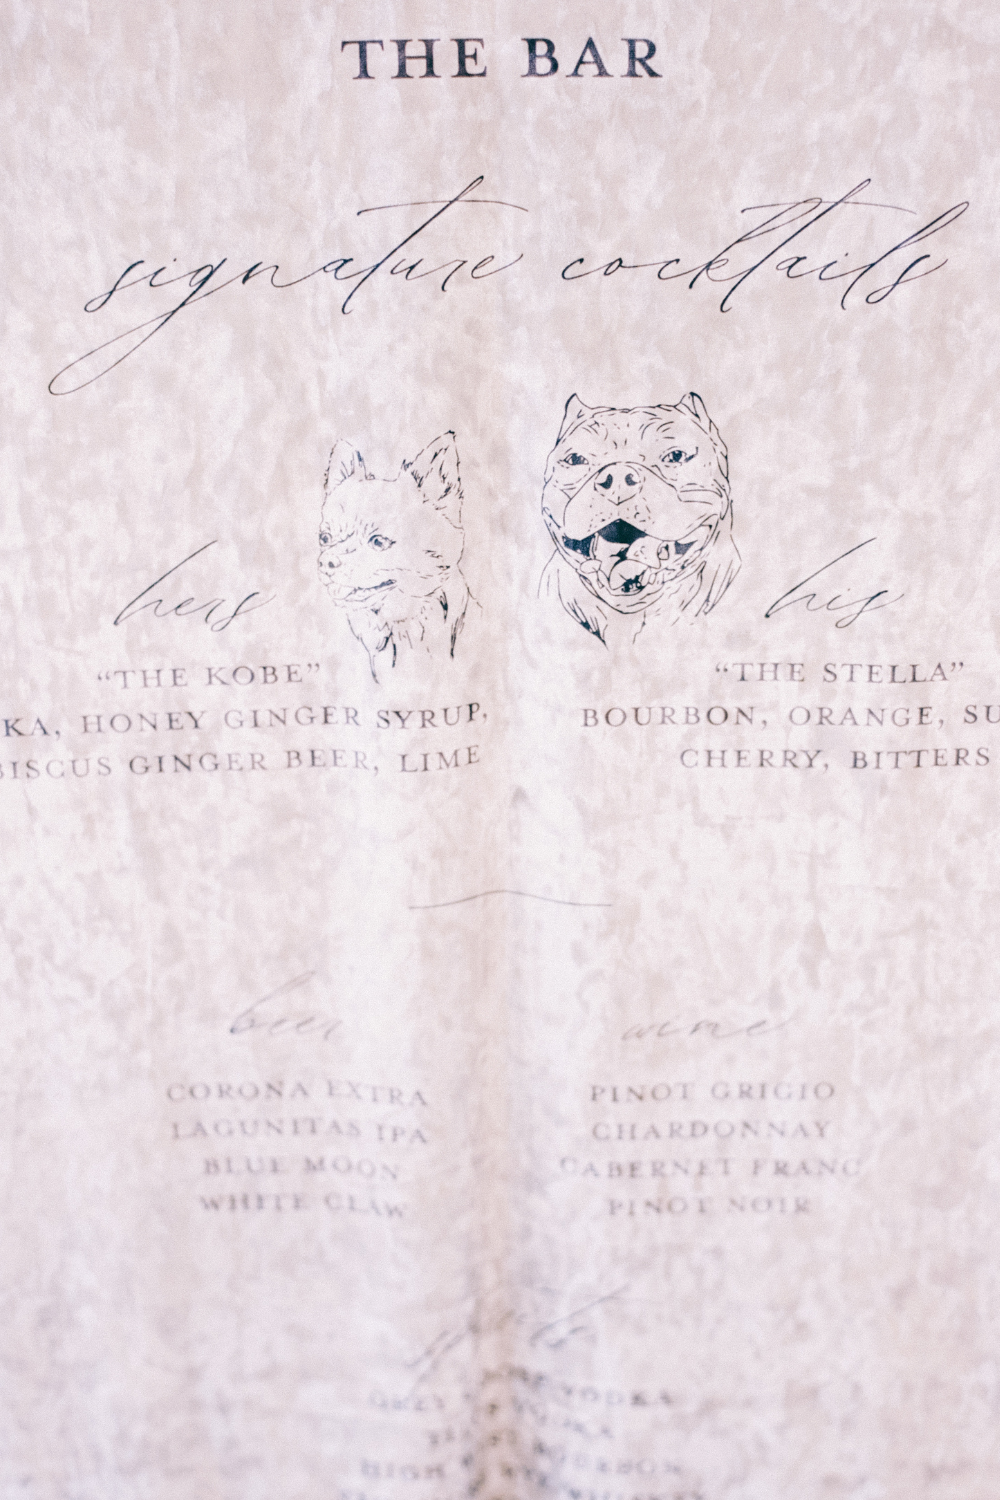 THE BAR
signature cocktails
hers
"THE KOBE"
KA, HONEY GINGER SYRUP,
BISCUS GINGER BEER, LIME
his
"THE STELLA"
BOURBON, ORANGE, SU
CHERRY, BITTERS
beer
CORONA EXTRA
LAGUNITAS IPA
BLUE MOON
WHITE CLAW
wine
PINOT GRIGIO
CHARDONNAY
CABERNET FRANC
PINOT NOIR
VODKA